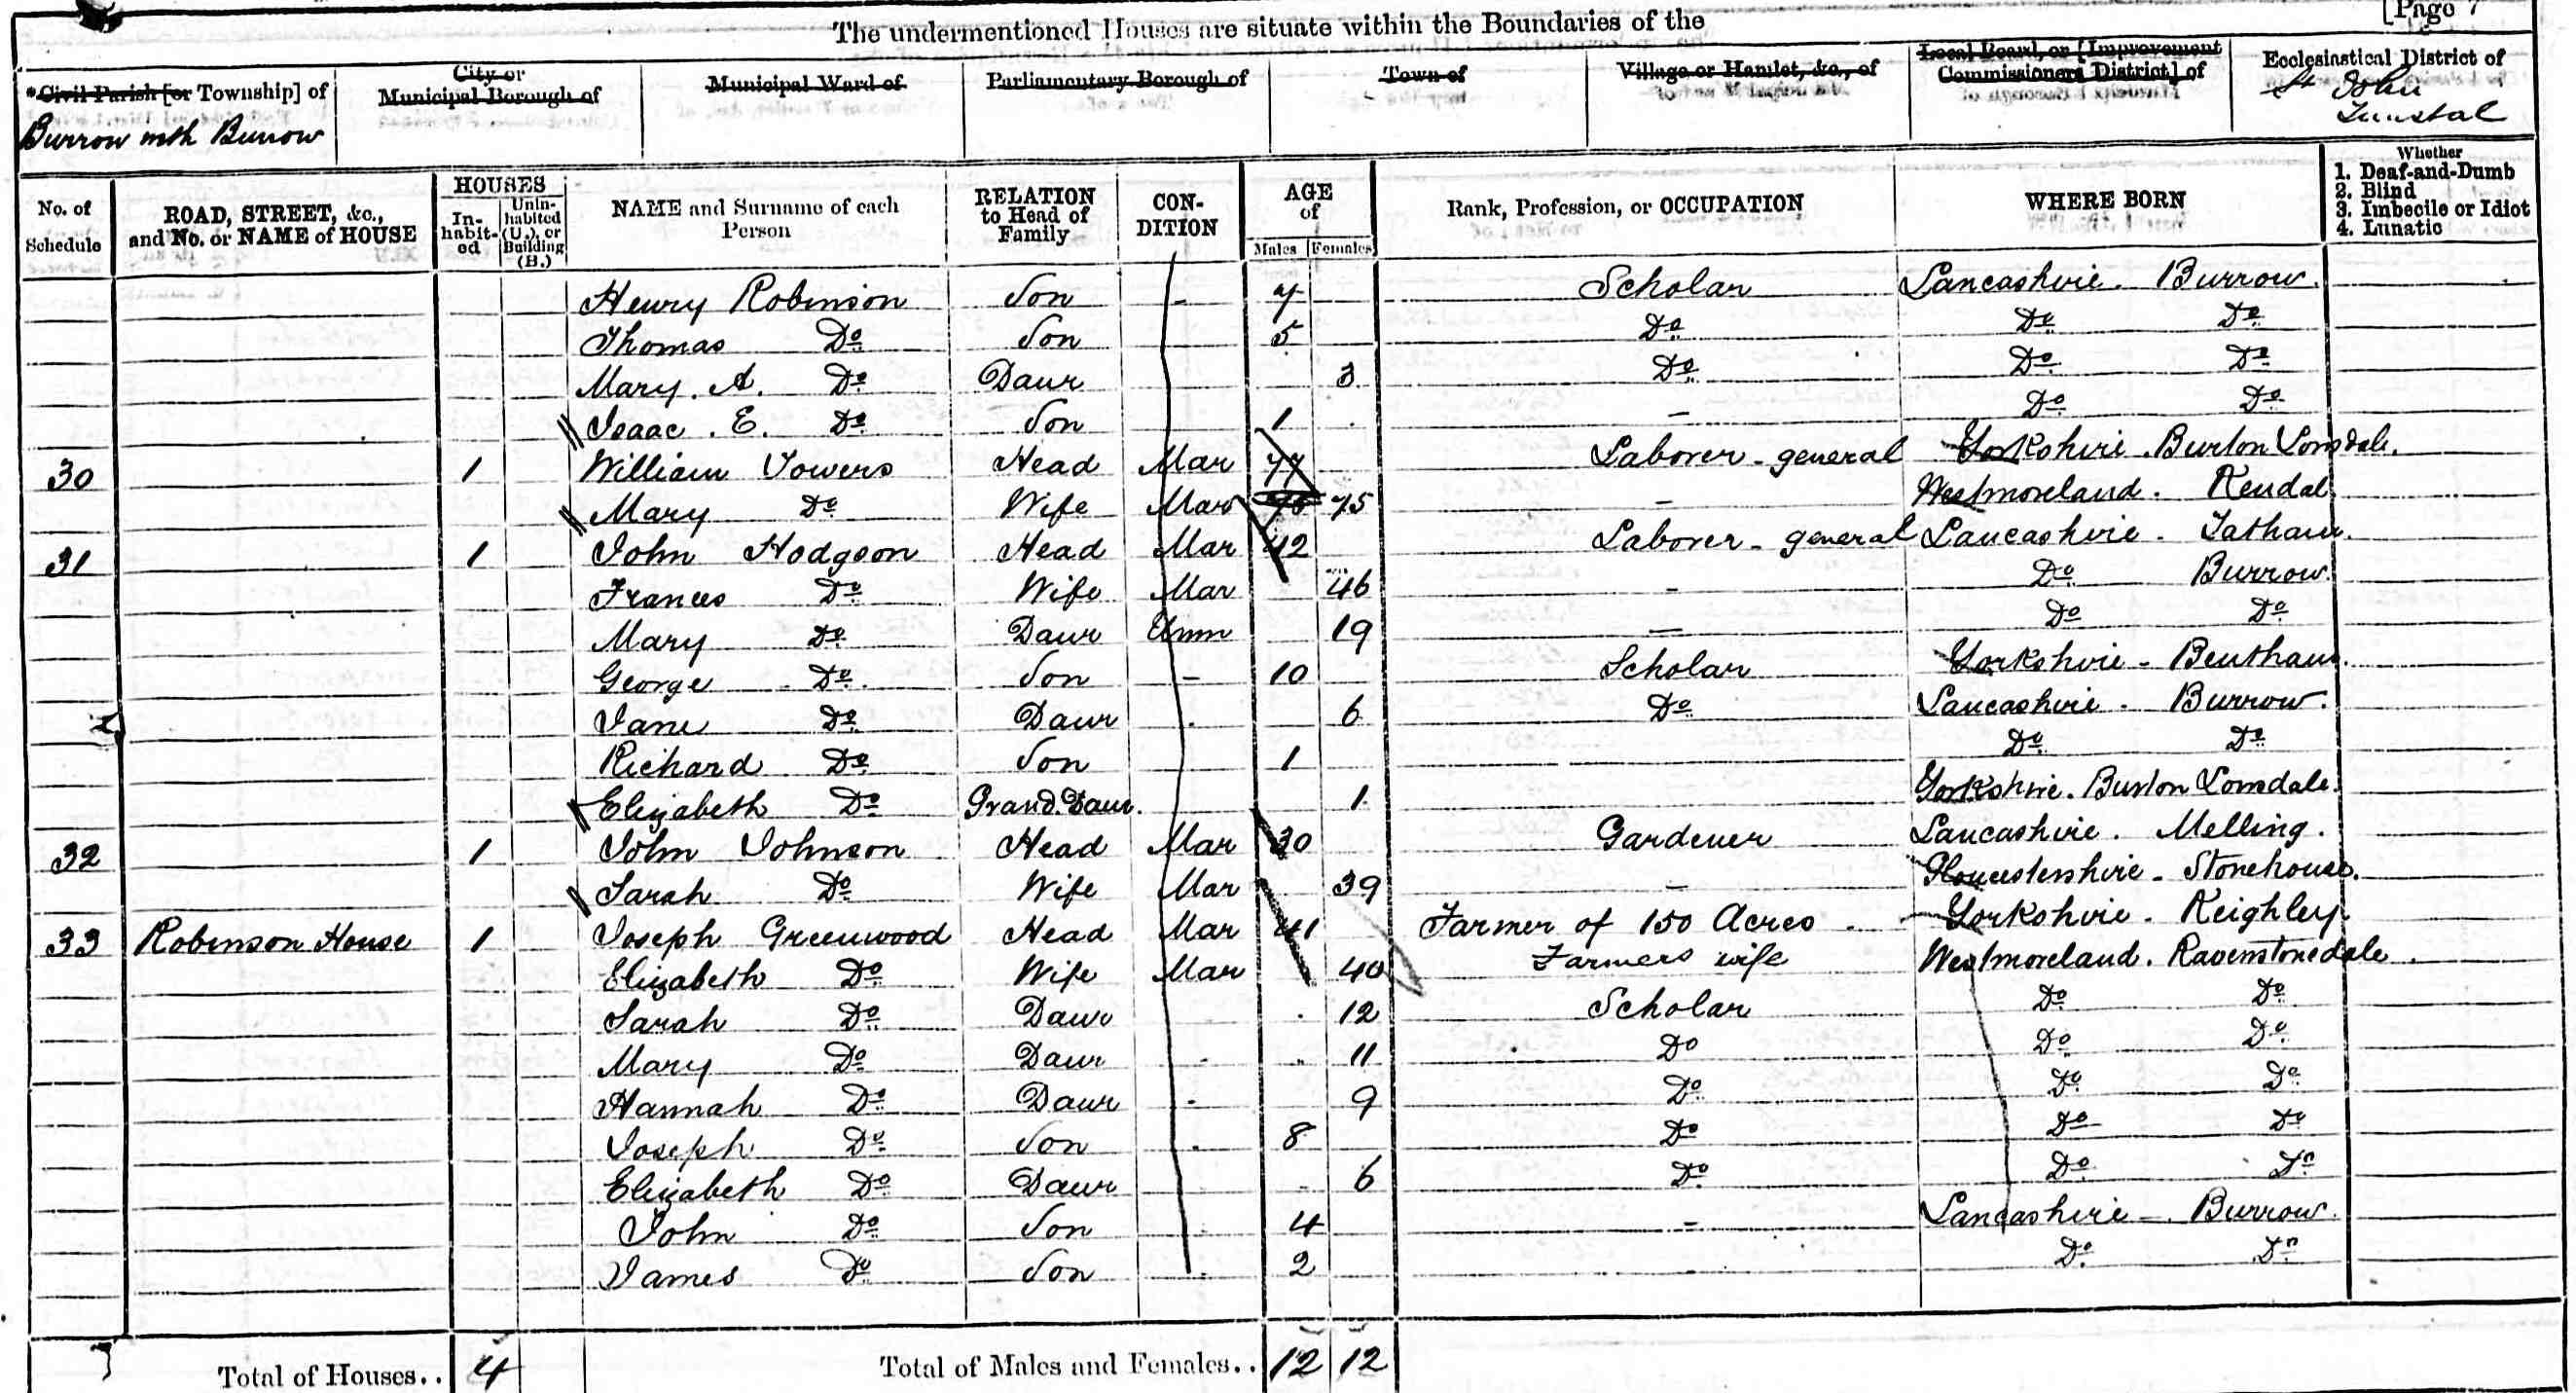 [Page 7
The undermentioned Houses are situate within the Boundaries of the
*Civil Parish [or Township] of
City or Municipal Borough of
Municipal Ward of
Parliamentary Borough of
Town of
Village or Hamlet, &c., of
Local Board, or [Improvement Commissioners District] of
Ecclesiastical District of
Burrow with Burrow
St John Tunstal
No. of Schedule
ROAD, STREET, &c., and No. or NAME of HOUSE
HOUSES
In-habit-ed
Unin-habited (U.), or Building (B.)
NAME and Surname of each Person
RELATION to Head of Family
CON-DITION
AGE of
Males Females
Rank, Profession, or OCCUPATION
WHERE BORN
Whether
1. Deaf-and-Dumb
2. Blind
3. Imbecile or Idiot
4. Lunatic
Henry Robinson Son - 7 Scholar Lancashire. Burrow.
Thomas Do Son 5 Do Do Do
Mary. A. Do Daur 3 Do Do Do
Isaac. E. Do Son 1 - Do Do
30 1 William Towers Head Mar 77 Laborer - general Yorkshire. Burton Lonsdale.
Mary Do Wife Mar 75 75 - Westmoreland. Kendal
31 1 John Hodgson Head Mar 42 Laborer - general Lancashire - Tatham.
Frances Do Wife Mar 46 - Do Burrow
Mary Do Daur Unm 19 - Do Do
George Do Son - 10 Scholar Yorkshire - Bentham.
Jane Do Daur 6 Do Lancashire. Burrow.
Richard Do Son 1 - Do Do
Elizabeth Do Grand.Daur. 1 Yorkshire. Burton Lonsdale.
32 1 John Johnson Head Mar 30 Gardener Lancashire. Melling.
Sarah Do Wife Mar 39 - Gloucestershire - Stonehouse.
33 Robinson House 1 Joseph Greenwood Head Mar 41 Farmer of 150 Acres Yorkshire. Keighley
Elizabeth Do Wife Mar 40 Farmers wife Westmoreland. Ravenstonedale.
Sarah Do Daur 12 Scholar Do Do
Mary Do Daur 11 Do Do Do
Hannah Do Daur 9 Do Do Do
Joseph Do Son 8 Do Do Do
Elizabeth Do Daur 6 Do Do Do
John Do Son 4 - Lancashire - Burrow.
James Do Son 2 - Do Do
Total of Houses.. 4 Total of Males and Females.. 12 12